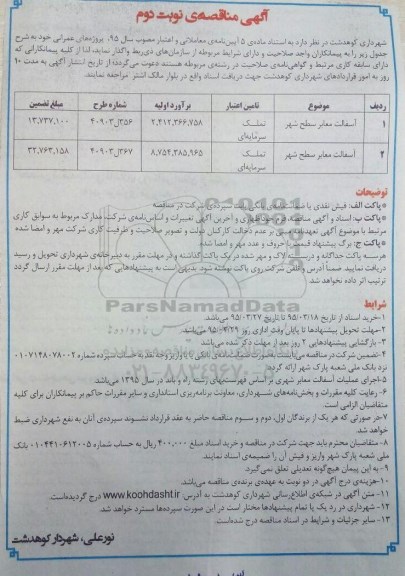 آگهی مناقصه‌ی نوبت دوم
شهرداری کوهدشت در نظر دارد به استناد ماده‌ی ۵ آیین‌نامه‌ی معاملاتی و اعتبار مصوب سال ۹۵، پروژه‌های عمرانی خود به شرح
جدول زیر را به پیمانکاران واجد صلاحیت و دارای شرایط مربوطه از سازمان‌های ذی‌ربط واگذار نماید، لذا از کلیه پیمانکارانی که
دارای سابقه کاری مرتبط و گواهی‌نامه‌ی صلاحیت در رشته‌ی مربوطه هستند دعوت می‌گردد از تاریخ انتشار آگهی به مدت ۱۰
روز به امور قراردادهای شهرداری کوهدشت جهت دریافت اسناد واقع در بلوار مالک اشتر مراجعه نمایند.
ردیف موضوع تامین اعتبار برآورد اولیه شماره طرح مبلغ تضمین
۱ آسفالت معابر سطح شهر تملک سرمایه‌ای ۲,۴۱۲,۳۶۶,۷۵۸ ۳۵۶ل۴۰۹۰۳ ۱۳,۷۳۷,۱۰۰
۲ آسفالت معابر سطح شهر تملک سرمایه‌ای ۸,۷۵۴,۳۸۵,۹۶۵ ۳۶۷ل۴۰۹۰۳ ۳۲,۷۶۳,۱۵۸
توضیحات
*پاکت الف: فیش نقدی یا ضمانت‌نامه‌ی بانکی بابت سپرده‌ی شرکت در مناقصه
*پاکت ب: اسناد و آگهی مناقصه، و آخرین آگهی تغییرات و اساس‌نامه‌ی شرکت، مدارک مربوط به سوابق کاری
مرتبط با موضوع آگهی تعهدنامه مبنی بر عدم دخالت کارکنان دولت و تصویر صلاحیت و ظرفیت کاری شرکت مهر و امضا شده
*پاکت ج: برگ پیشنهاد قیمت با حروف و عدد مهر و امضا شده
هرسه پاکت جداگانه و دربسته لاک و مهر شده در یک پاکت گذاشته و در مهلت مقرر به دبیرخانه‌ی شهرداری تحویل و رسید
دریافت نمایید. ضمنا آدرس و تلفن شرکت روی پاکت نوشته شود. بدیهی است به پیشنهادهایی که بعد از مهلت مقرر ارسال گردد
ترتیب اثر داده نخواهد شد.
ParsNamadData
۰۲۱-۸۸۳۴۹۶۷۰-۵
شرایط
۱-خرید اسناد از تاریخ ۹۵/۰۳/۱۸ تا تاریخ ۹۵/۰۳/۲۷ می‌باشد.
۲-مهلت تحویل پیشنهادها تا پایان وقت اداری روز ۹۵/۰۳/۲۹ می‌باشد.
۳- بازگشایی پیشنهادهایی ۲ روز بعد از مهلت ذکر شده می‌باشد.
۴-تضمین شرکت در مناقصه می‌بایست به‌صورت ضمانت‌نامه‌ی بانکی یا واریز وجه نقد به حساب سپرده شماره ۰۱۰۷۱۴۸۰۷۸۰۰۲
نزد بانک ملی شعبه پارک شهر ارائه گردد.
۵-اجرای عملیات آسفالت معابر شهری بر اساس فهرست‌بهای رسته راه و باند در سال ۱۳۹۵ می‌باشد.
۶- رعایت کلیه مقررات و بخش‌نامه‌های شهرداری، معاونت برنامه‌ریزی استانداری و سایر مقررات حاکم بر پیمانکاران برای کلیه
متقاضیان الزامی است.
۷-در صورتی که هر یک از برندگان اول، دوم و سوم مناقصه حاضر به عقد قرارداد نشوند سپرده‌ی آنان به نفع شهرداری ضبط
خواهد شد.
۸-متقاضیان محترم باید جهت شرکت در مناقصه و خرید اسناد مبلغ ۴۰۰,۰۰۰ ریال به حساب شماره ۰۱۰۴۴۱۰۶۱۲۰۰۵ بانک
ملی شعبه پارک شهر واریز و فیش آن را ضمیمه‌ی اسناد نمایند.
۹-به این پیمان هیچ‌گونه تعدیلی تعلق نمی‌گیرد.
۱۰-هزینه‌ی درج آگهی در دو نوبت به عهده‌ی برنده‌ی مناقصه می‌باشد.
۱۱- متن آگهی در شبکه‌ی اطلاع‌رسانی شهرداری کوهدشت به آدرس: www.koohdasht.ir درج گردیده‌است.
۱۲-شهرداری در رد یک یا تمام پیشنهادها مختار است در این صورت سپرده‌ها مسترد خواهد شد.
۱۳- سایر جزئیات و شرایط در اسناد مناقصه درج شده‌است.
نورعلی، شهردار کوهدشت